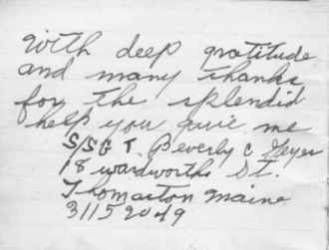 With deep gratitude
and many thanks
for the splendid
help you give me
S/SGT. Beverly C Geyer
18 wardworths St.
Thomaston Maine
31152049